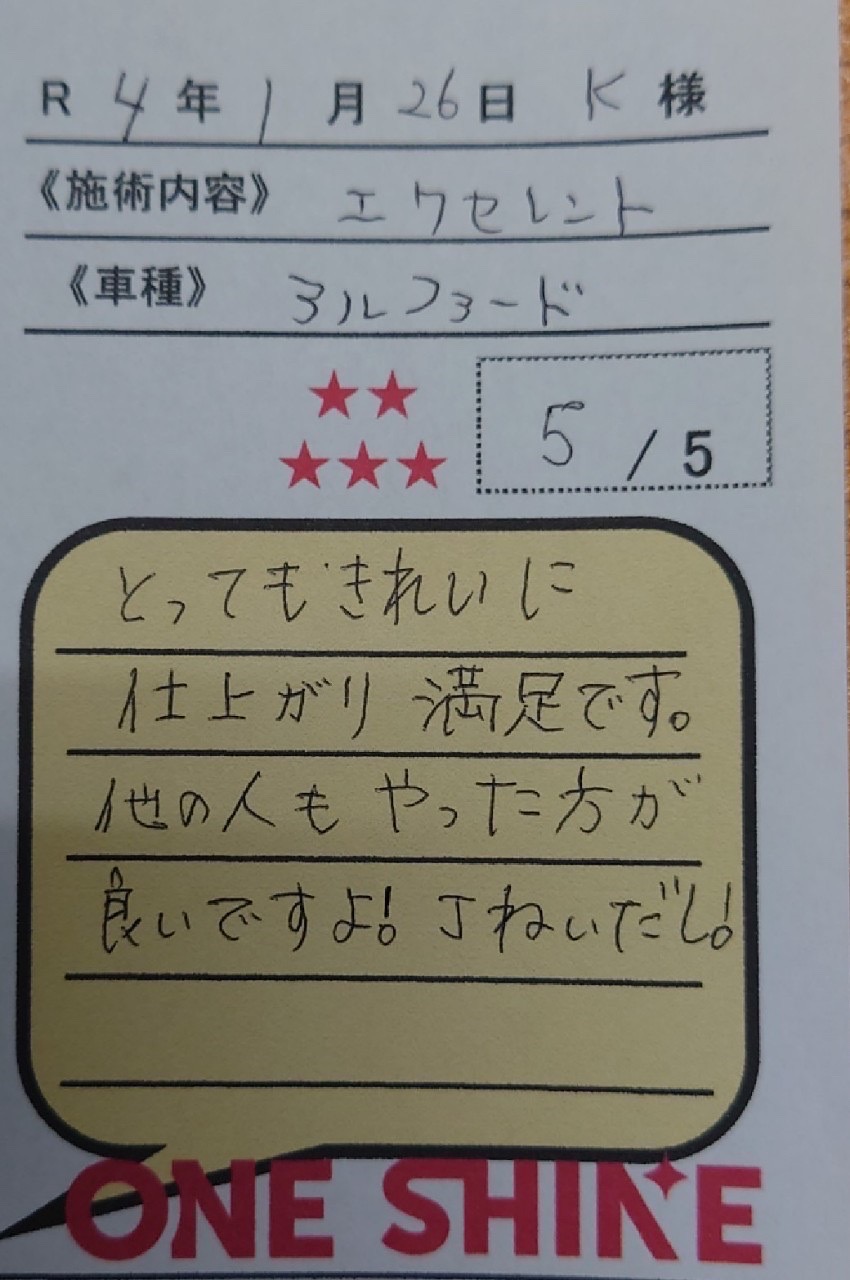 R 4年1月26日 K様
《施術内容》 エクセレント
《車種》 アルファード
★★
★★★
5/5
とってもきれいに
仕上がり満足です。
他の人もやった方が
良いですよ!てねいだし!
ONE SHINE